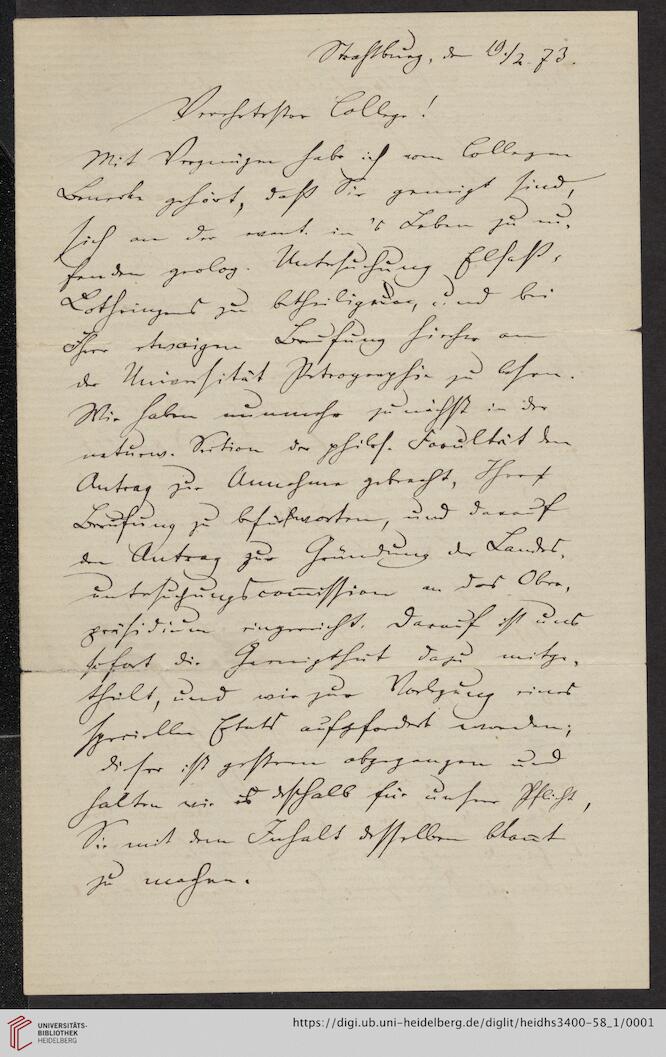 Straßburg, den 19./2. 73.
Verehrtester College!
Mit Vergnügen habe ich vom Collegen
Benecke gehört, daß Sie geneigt sind,
sich an der event. in's Leben zu ru-
fenden geolog. Untersuchung Elsaß-
Lothringens zu betheiligen, und bei
Ihrer etwaigen Berufung hierher an
der Universität Petrographie zu lehren.
Wir haben nunmehr zunächst in der
naturw. Section der philos. Facultät den
Antrag zur Annahme gebracht, Ihre
Berufung zu befürworten, und darauf
den Antrag zur Gründung der Landes-
untersuchungscommission an das Ober-
präsidium eingereicht. Darauf ist uns
sofort die Geneigtheit dazu mitge-
theilt, und wir zur Vorlegung eines
speciellen Etats aufgefordert worden;
dieser ist gestern abgegangen und
halten wir es deshalb für unsere Pflicht,
Sie mit dem Inhalt desselben bekannt
zu machen.
UNIVERSITÄTS-
BIBLIOTHEK
HEIDELBERG
https://digi.ub.uni-heidelberg.de/diglit/heidhs3400-58_1/0001